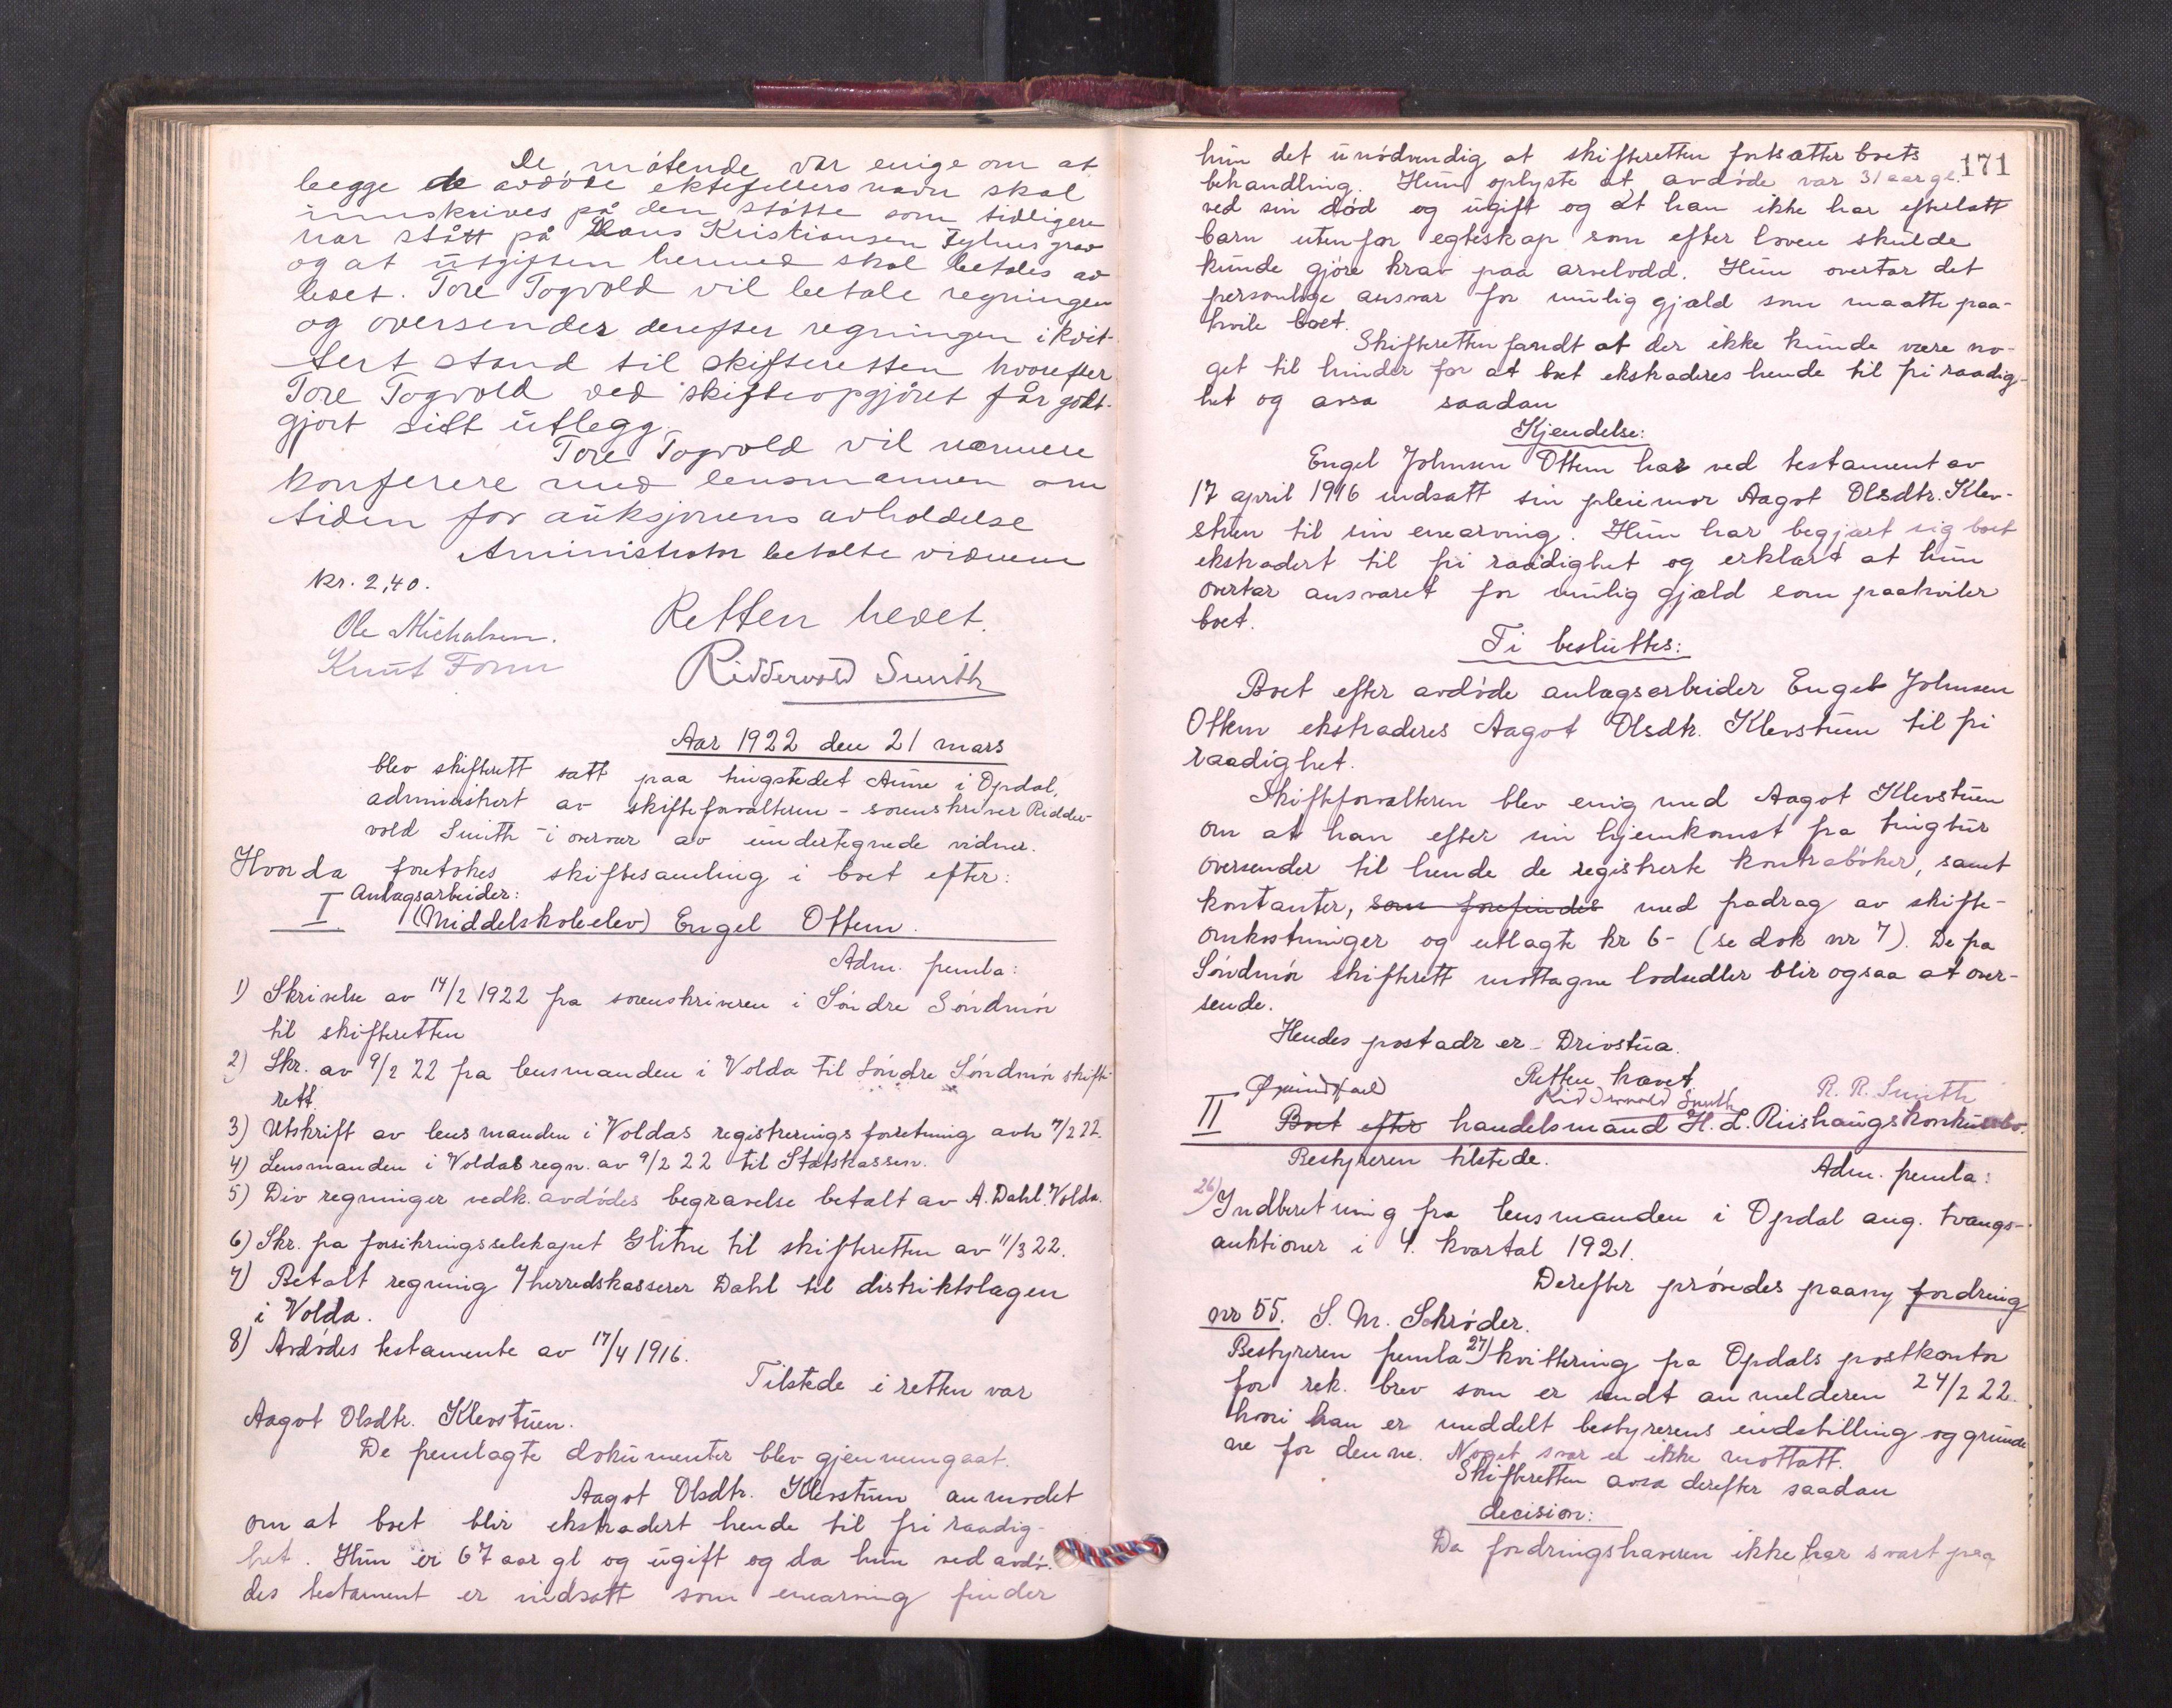 De møtende var enige om at
begge de avdøde ektefellers navn skal
innskrives på den støtte som tidligere
har stått på Hans Kristiansen grav
og at utgiften hermed skal betales av
boet. Tore Togvold vil betale regningen
og oversender derefter regningen i kvit-
tert stand til skifteretten hvorefter
Tore Togvold ved skifteopgjøret får godt-
gjort sitt utlegg.
Tore Togvold vil nærmere
konferere med lensmannen om
tiden for auksjonens avholdelse
Aministrator betalte vidnene
kr. 2,40.
Retten hevet.
Ole Michalsen.
Knut Fonn
Riddervold Smith
Aar 1922 den 21 mars
blev skifterett satt paa tingstedet Aune i Opdal,
administrert av skifteforvalteren - sorenskriver Ridder-
vold Smith - i overvær av undertegnede vidner.
Hvorda foretokes skiftesamling i boet efter:
Anlægsarbeider:
I (Middelskoleelev) Engel Ottem.
Adm. femla:
1) Skrivelse av 14/2 1922 fra sorenskriveren i Søndre Søndmør
til skifteretten
2) Skr. av 9/2 22 fra lensmanden i Volda til Søndre Søndmør skifte
rett.
3) Utskrift av lensmanden i Voldas registreringsforretning avh 7/2 22.
4) Lensmanden i Voldas regn. av 9/2 22 til Statskassen.
5) Div regninger vedk. avdødes begravelse betalt av A. Dahl. Volda.
6) Skr. fra forsikringsselskapet Glitne til skifteretten av 11/3 22.
7) Betalt regning f herredskasserer Dahl til distriktslægen
i Volda.
8) Avdødes testamente av 17/4 1916.
Tilstede i retten var
Aagot Olsdtr. Klevstuen.
De femlagte dokumenter blev gjennemgaat.
Aagot Olsdtr. Klevstuen anmodet
om at boet blir ekstradert hende til fri raadig-
het. Hun er 67 aar gl og ugift og da hun ved avdø-
des testament er indsatt som enearving finder
171
hun det unødvendig at skifteretten fortsætter boets
behandling. Hun oplyste at avdøde var 31 aar gl.
ved sin død og ugift og at han ikke har efterlatt
barn utenfor egteskap som efter loven skulde
kunde gjøre krav paa arvelodd. Hun overtar det
personlige ansvar for mulig gjæld som maatte paa-
hvile boet.
Skifteretten fandt at der ikke kunde være no-
get til hinder for at boet ekstraderes hende til fri raadig-
het og avsa saadan
Kjendelse:
Engel Johnsen Ottem har ved testament av
17 april 1916 indsatt sin pleiemor Aagot Olsdtr. Klev-
stuen til sin enearving. Hun har begjært sig boet
ekstradert til fri raadighet og erklært at hun
overtar ansvaret for mulig gjæld som paahviler
boet.
Ti besluttes:
Boet efter avdøde anlægsarbeider Engel Johnsen
Ottem ekstraderes Aagot Olsdtr. Klevstuen til fri
raadighet.
Skifteforvalteren blev enig med Aagot Klevstuen
om at han efter sin hjemkomst fra tingtur
oversender til hende de registrerte kontrabøker, samt
kontanter, som forefindes med fradrag av skifte-
omkostninger og utlagte kr 6- (se dok nr 7). De fra
Søndmør skifterett mottagne lodsedler blir ogsaa at over-
sende.
Hendes postadr er - Drivstua.
Retten hævet.
Riddervold Smith
R. R. Smith
II Boet efter handelsmand H. L. Riishaugs konkursbo.
Bestyreren tilstede.
Adm. femla:
26) Indberetning fra lensmanden i Opdal ang. tvangs-
auktioner i 4. kvartal 1921.
Derefter prøvedes paany fordring
nr 55. S. M. Schrøder.
Bestyreren femla 27) kvittering fra Opdals postkontor
for rek. brev som er sendt anmelderen 24/2 22.
hvori han er meddelt bestyrerens indstilling og grunde
ne for denne. Noget svar er ikke mottatt.
Skifteretten avsa derefter saadan
decision:
Da fordringshaveren ikke har svart paa